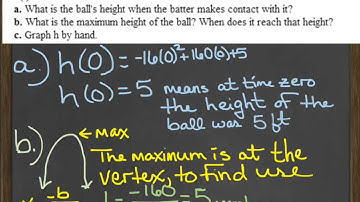 a. What is the ball's height when the batter makes contact with it?
b. What is the maximum height of the ball? When does it reach that height?
c. Graph h by hand.
a.) h(0) = -16(0)²+160(0)+5
h(0) = 5 means at time zero
the height of the
ball was 5 ft
b.) ← max
The maximum is at the
vertex, to find use
-b -160 = 5